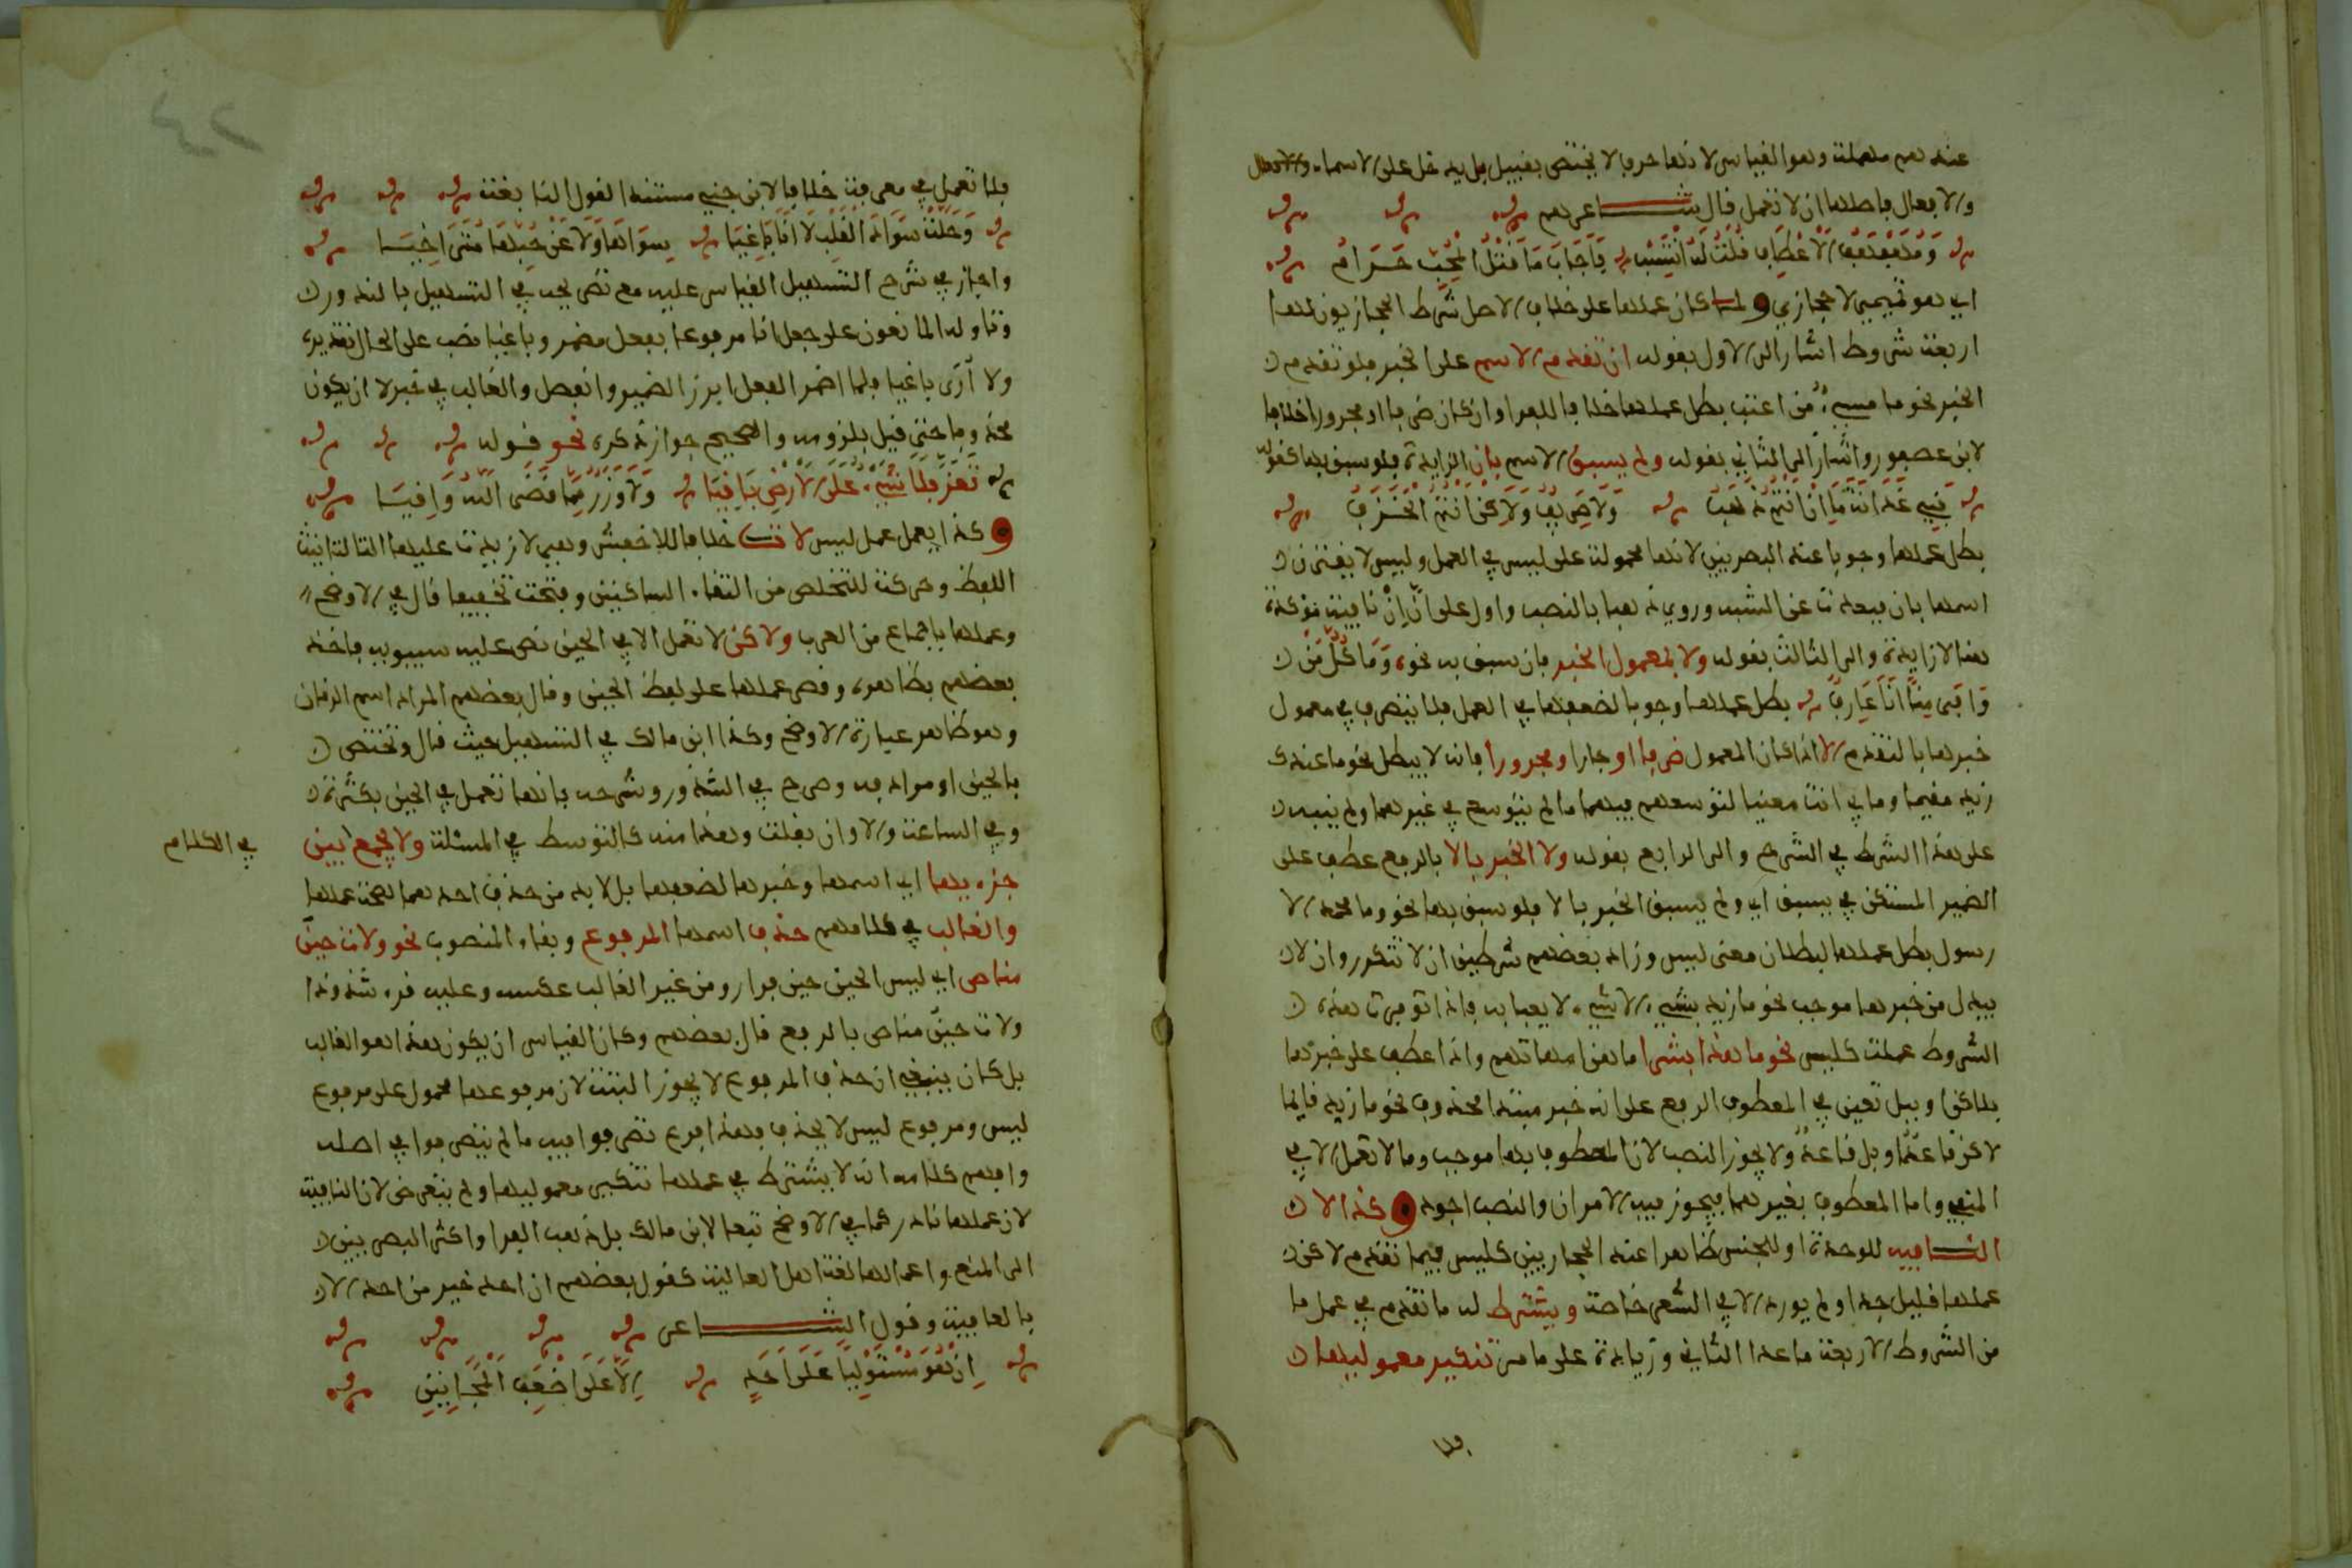 عندهم مهملة وهو القياس لانها حرف لا يختص بقبيل بل يدخل على الاسماء
والافعال فاصلها ان لا تعمل قال شاعرهم
ومهفهف الاعطاف قلت له انتسب فاجاب ما قتل المحب حرام
اي هو تميمي لا حجازي ولما كان عملها على خلاف الاصل شرط الحجازيون لها
اربعة شروط اشار الى الاول بقوله ان تقدم الاسم على الخبر فلو تقدم
الخبر نحو ما مسيء من اعتب بطل عملها خلافا للفرا وان كان ظرفا او مجرورا خلافا
لابن عصفور واشار الى الثاني بقوله ولم يسبق الاسم بان الزايدة فلو سبق بها كقوله
بني غدانة ما ان انتم ذهب ولا صريف ولاكن انتم الخزف
بطل عملها وجوبا عند البصريين لانها محمولة على ليس في العمل وليس لا يقترن
اسمها بان فبعدت عن الشبه وروي ذهبا بالنصب واول على ان ان نافية مؤكدة
لا زايدة والى الثالث بقوله ولا بمعمول الخبر فان سبق به نحو وما كل من
وافى منى انا عارف بطل عملها وجوبا لضعفها في العمل فلا يتصرف في معمول
خبرها بالتقدم الا اذا كان المعمول ظرفا او جارا ومجرورا فانه لا يبطل نحو ما عندك
زيد مقيما وما بي انت معنيا لتوسعهم فيهما ما لم يتوسع في غيرهما ولم ينبه
على هذا الشرط في الشرح والى الرابع بقوله ولا الخبر بالا بالرفع عطف على
الضمير المستكن في يسبق اي ولم يسبق الخبر بالا فلو سبق بها نحو وما محمد الا
رسول بطل عملها لبطلان معنى ليس وزاد بعضهم شرطين ان لا تتكرر وان لا
يبدل من خبرها موجب نحو ما زيد بشيء الا شيء لا يعبا به فاذا توفرت هذه
الشروط عملت كليس نحو ما هذا بشرا ما هن امهاتهم واذا عطف على خبرها
بلاكن او ببل تعين في المعطوف الرفع على انه خبر مبتدا محذوف نحو ما زيد قايما
لاكن قاعد او بل قاعد ولا يجوز النصب لان المعطوف بهما موجب وما لا تعمل الا في
المنفي واما المعطوف بغيرهما فيجوز فيه الامران والنصب اجود وكذا لا
النافية للوحدة او للجنس ظاهرا عند الحجازيين كليس فيما تقدم لاكن
عملها قليل جدا ولم يورد الا في الشعر خاصة ويشترط له ما تقدم في عمل ما
من الشروط الاربعة ما عدا الثاني وزيادة على ما مر تنكير معموليها
فلا
فلا تعمل في معرفة خلافا لابن جني مستندا لقول النابغة
وحلت سواد القلب لا انا باغيا سواها ولا عن حبها متراخيا
واجاز في شرح التسهيل القياس عليه مع نصه في التسهيل بالندور
وتاوله المانعون على جعل انا مرفوعا بفعل مضمر وباغيا نصب على الحال تقديره
ولا ارى باغيا فلما اضمر الفعل ابرز الضمير وانفصل والغالب في خبر لا ان يكون
محذوفا حتى قيل بلزومه والصحيح جواز ذكره نحو قوله
تعز فلا شيء على الارض باقيا ولا وزر مما قضى الله واقيا
وكذا يعمل عمل ليس لات خلافا للاخفش وهي لا زيدت عليها التا لتانيث
اللفظ وحركت للتخلص من التقاء الساكنين وفتحت تخفيفا قال في الاوضح
وعملها باجماع من العرب ولاكن لا تعمل الا في الحين نص عليه سيبويه فاخذ
بعضهم بظاهره وقصر عملها على لفظ الحين وقال بعضهم المراد اسم الزمان
وهو ظاهر عبارة الاوضح وكذا ابن مالك في التسهيل حيث قال وتختص
بالحين او مرادفه وصرح في الشذور وشرحه بانها تعمل في الحين بكثرة
وفي الساعة والاوان بقلة وهذا منه كالتوسط في المسئلة ولا يجمع بين
في الكلام
جزءيها اي اسمها وخبرها لضعفها بل لا بد من حذف احدهما لصحة عملها
والغالب في كلامهم حذف اسمها المرفوع وبقاء المنصوب نحو ولات حين
مناص اي ليس الحين حين فرار ومن غير الغالب عكسه وعليه قرء شذوذا
ولات حين مناص بالرفع قال بعضهم وكان القياس ان يكون هذا هو الغالب
بل كان ينبغي ان حذف المرفوع لا يجوز البتة لان مرفوعها محمول على مرفوع
ليس ومرفوع ليس لا يحذف وهذا فرع تصرفوا فيه ما لم يتصرفوا في اصله
وافهم كلامه انه لا يشترط في عملها تنكير معموليها ولم يتعرض لان النافية
لان عملها نادر كما في الاوضح تبعا لابن مالك بل ذهب الفرا واكثر البصريين
الى المنع واعمالها لغة اهل العالية كقول بعضهم ان احد خير من احد الا
بالعافية وقول الشاعر
ان هو مستوليا على احد الا على اضعف المجانين